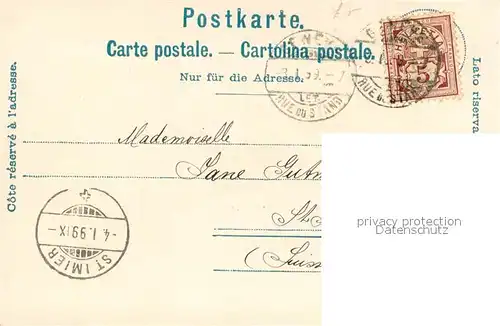 Postkarte.
Carte postale. — Cartolina postale.
Nur für die Adresse.
Côte réservé à l'adresse.
Lato riserva
Mademoiselle
Jane
(Suiss
privacy protection
Datenschutz
ST IMIER
-4.I.99.IX-
RUE DU STAND